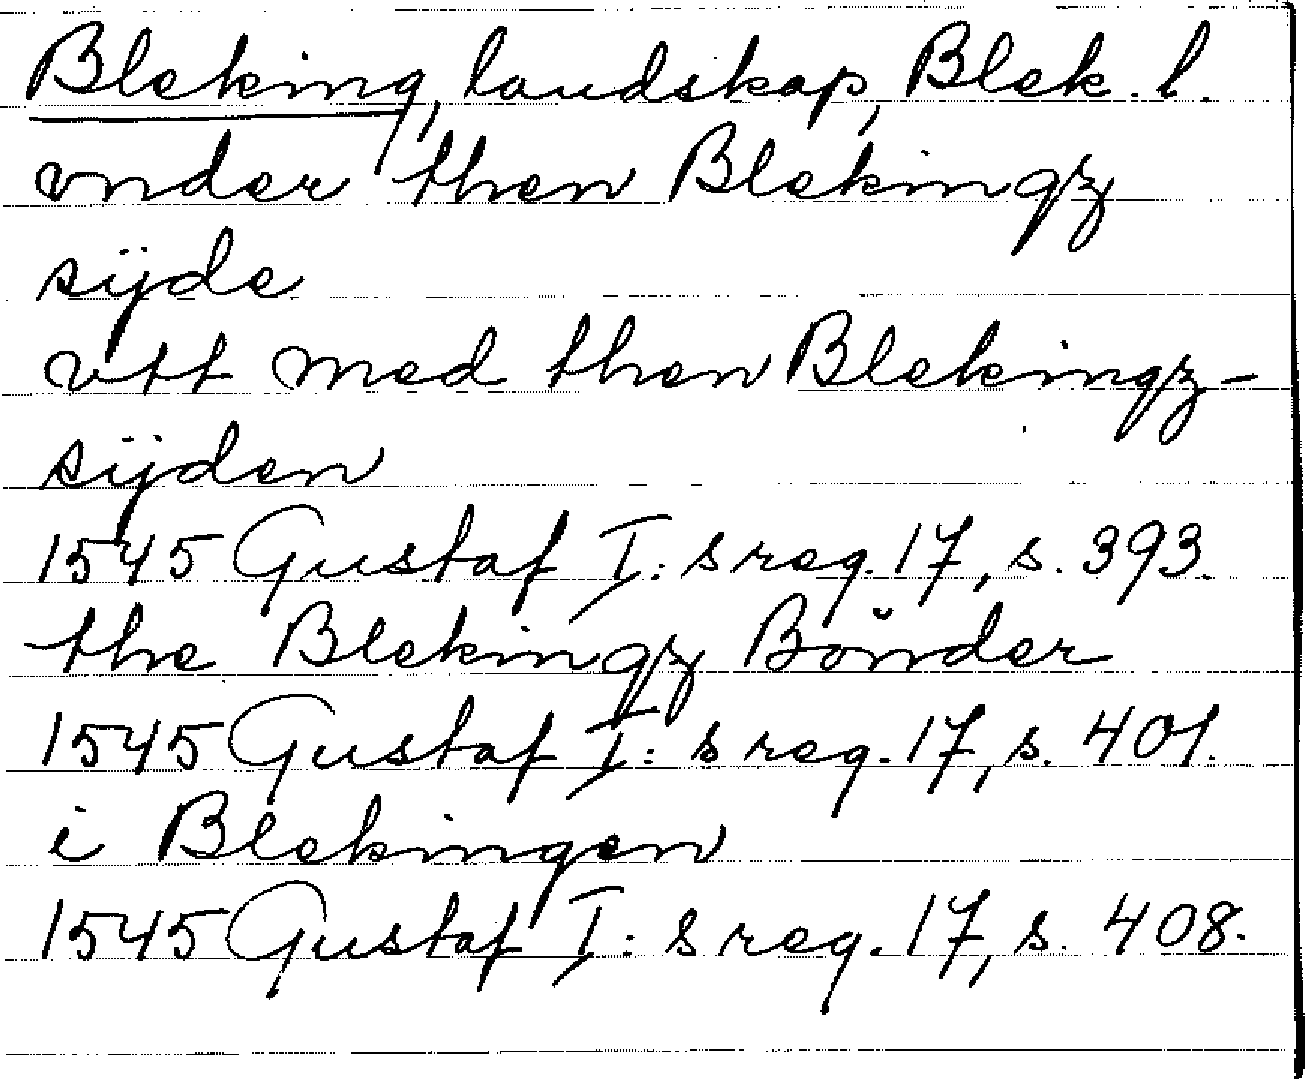 Bleking, landskap, Blek. l.
vnder then Blekingz
sijde
vtt med then Blekingz-
sijden
1545 Gustaf I: s reg. 17, s. 393.
the Blekingz Bönder
1545 Gustaf I: s reg. 17, s. 401.
i Blekingen
1545 Gustaf I: s reg. 17, s. 408.